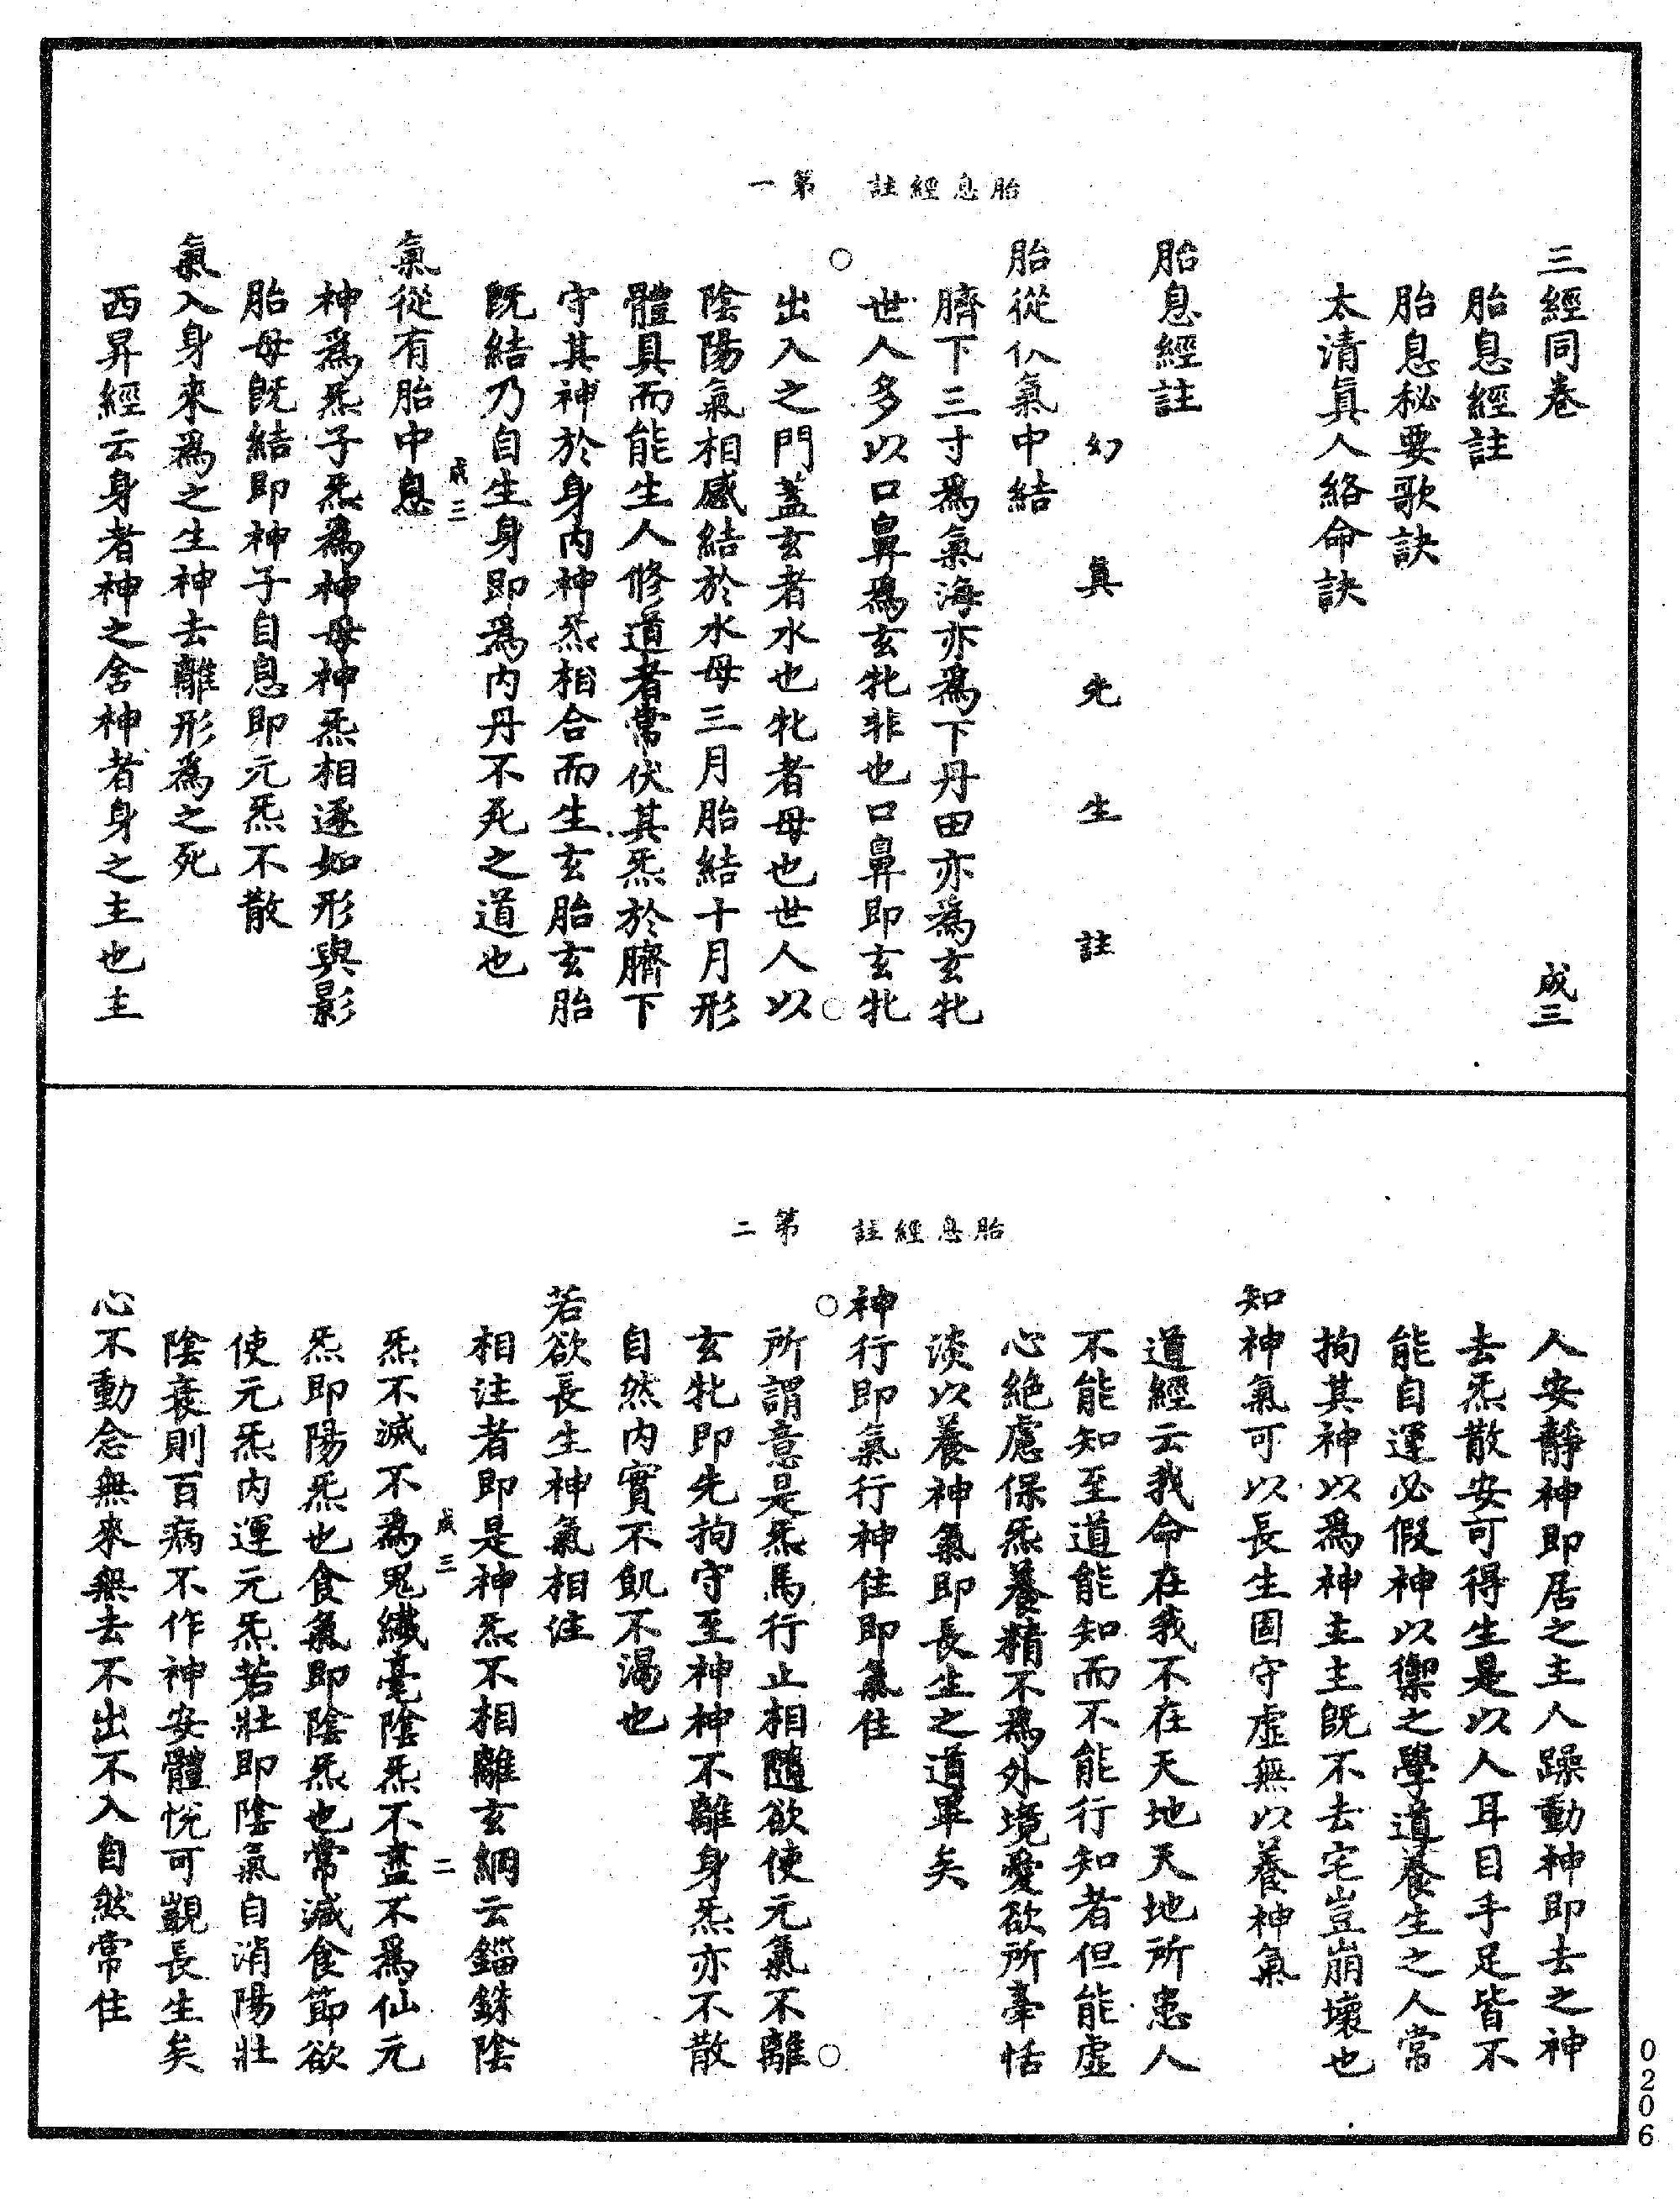 胎息經註　第一
三經同卷　成三
胎息經註
胎息秘要歌訣
太清真人絡命訣
胎息經註
幻真先生註
胎從伏氣中結
臍下三寸為氣海亦為下丹田亦為玄牝
世人多以口鼻為玄牝非也口鼻即玄牝
出入之門蓋玄者水也牝者母也世人以
陰陽氣相感結於水母三月胎結十月形
體具而能生人修道者常伏其炁於臍下
守其神於身內神炁相合而生玄胎玄胎
既結乃自生身即為內丹不死之道也
成三
氣從有胎中息
神為炁子炁為神母神炁相逐如形與影
胎母既結即神子自息即元炁不散
氣入身來為之生神去離形為之死
西昇經云身者神之舍神者身之主也主
胎息經註　第二
人安靜神即居之主人躁動神即去之神
去炁散安可得生是以人耳目手足皆不
能自運必假神以禦之學道養生之人常
拘其神以為神主主既不去宅豈崩壞也
知神氣可以長生固守虛無以養神氣
道經云我命在我不在天地天地所患人
不能知至道能知而不能行知者但能虛
心絕慮保炁養精不為外境愛欲所牽恬
淡以養神氣即長生之道畢矣
神行即氣行神住即氣住
所謂意是炁馬行止相隨欲使元氣不離
玄牝即先拘守至神神不離身炁亦不散
自然內實不飢不渴也
若欲長生神氣相注
相注者即是神炁不相離玄綱云錙銖陰
成三　二
炁不滅不為鬼纖毫陰炁不盡不為仙元
炁即陽炁也食氣即陰炁也常減食節欲
使元炁內運元炁若壯即陰氣自消陽壯
陰衰則百病不作神安體悅可覬長生矣
心不動念無來無去不出不入自然常住
0206